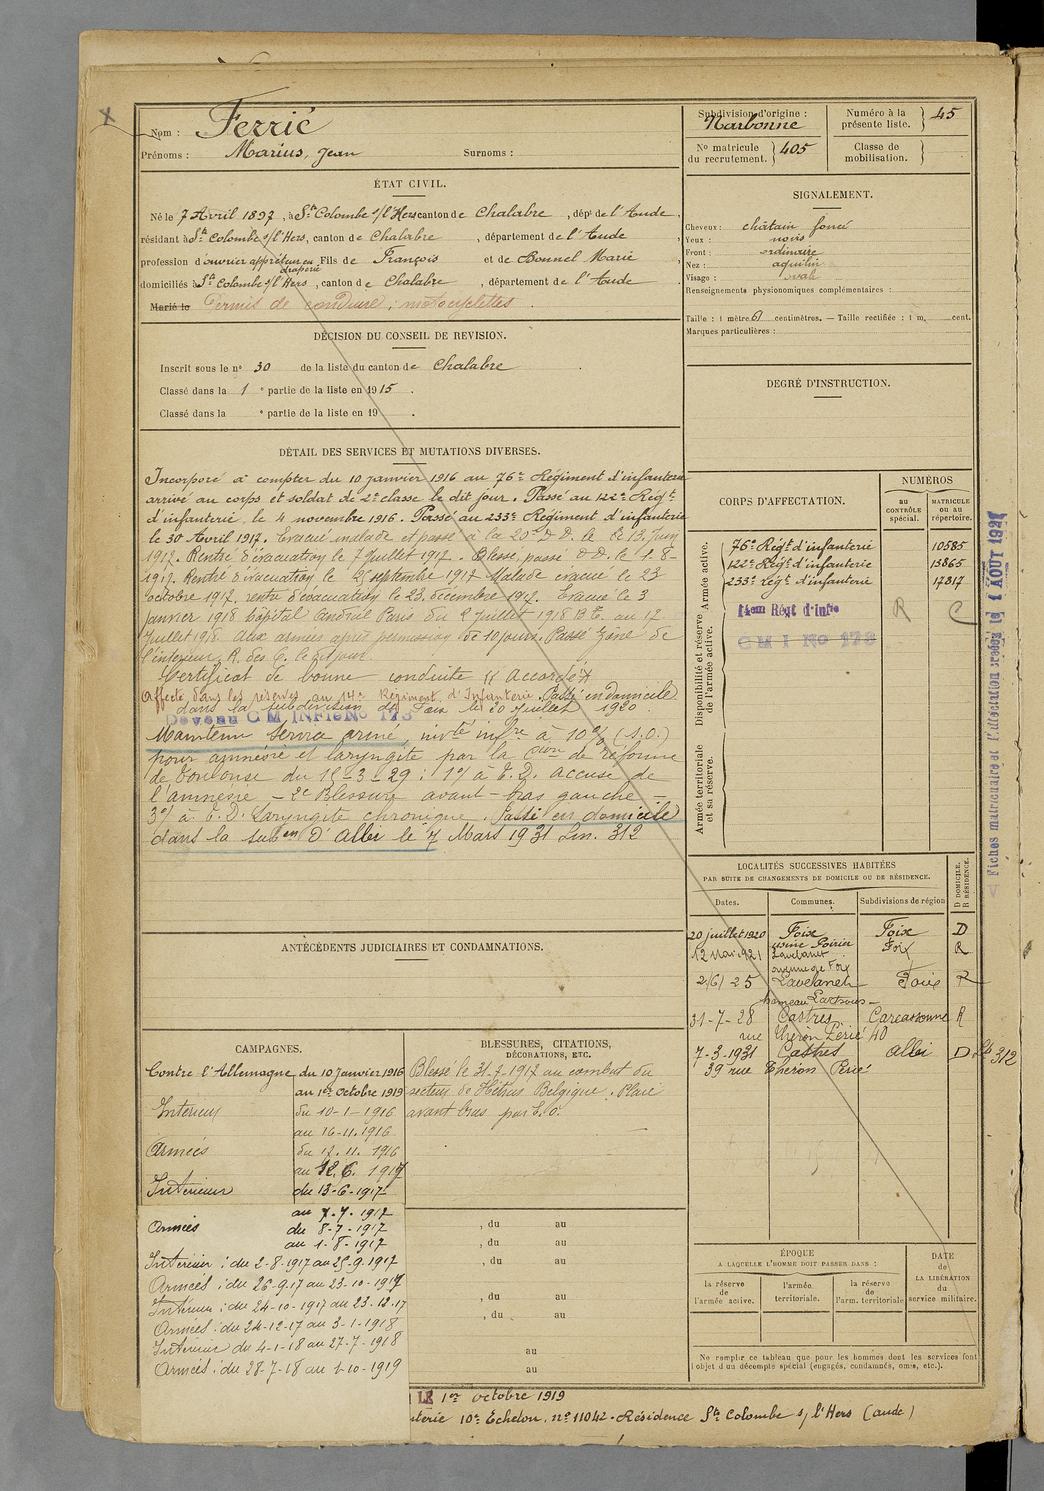 Nom : Ferrié
Prénoms : Marius, Jean Surnoms :
ÉTAT CIVIL.
Né le 7 Avril 1897, à Ste Colombe s/l'Hers canton de Chalabre, dépt de l'Aude,
résidant à Ste Colombe s/l'Hers, canton de Chalabre, département de l'Aude
profession d'ouvrier appreteur en draperie Fils de François et de Bonnel Marie,
domiciliés à Ste Colombe s/l'Hers, canton de Chalabre, département de l'Aude
Marié le Permis de conduire : motocyclettes.
DÉCISION DU CONSEIL DE REVISION.
Inscrit sous le no 30 de la liste du canton de Chalabre.
Classé dans la 1e partie de la liste en 1915.
Classé dans la e partie de la liste en 19 .
DÉTAIL DES SERVICES ET MUTATIONS DIVERSES.
Incorporé à compter du 10 janvier 1916 au 76e Régiment d'infanterie
arrivé au corps et soldat de 2e classe le dit jour. Passé au 122e Régt
d'infanterie, le 4 novembre 1916. Passé au 233e Régiment d'infanterie
le 30 Avril 1917. Evacué malade et passé à la 20e D D. le 13 Juin
1917. Rentré d'évacuation le 7 Juillet 1917. Blessé, passé D D. le 1-8-
1917. Rentré d'évacuation le 25 septembre 1917 Malade evacué le 23
octobre 1917, rentré d'évacuation le 23 decembre 1917. Evacué le 3
janvier 1918 hôpital Andral Paris du 2 Juillet 1918 au 17
Juillet 1918. Aux armées après permission de 10 jours. Passé Zône de
l'intérieur R. des C. le dit jour.
Certificat de bonne conduite "Accordé"
Affecté dans les réserves au 14e Régiment d'Infanterie. Passé en domicile
dans la subdivision de Foix le 20 Juillet 1920.
Devenu C M INFie No 173
Maintenu service armé, invté infre à 10% (S.O.)
pour amnésie et laryngite par la Cion de réforme
de Toulouse du 15-3-29 : 1o/ à E.D. accuse de
l'amnésie - 2o Blessure avant-bras gauche -
3o/ à E.D. Laryngite chronique. Passé en domicile
dans la subon d'Albi le 7 Mars 1931 Lin. 312
ANTÉCÉDENTS JUDICIAIRES ET CONDAMNATIONS.
CAMPAGNES.
Contre l'Allemagne du 10 janvier 1916
au 1er octobre 1919
Intérieur du 10-1-1916
au 16-11-1916
Armées du 17.11.1916
au 12.6.1917
Intérieur du 13-6-1917
au 7-7-1917
Armées du 8-7-1917
au 1-8-1917
Intérieur : du 2-8-1917 au 25-9-1917
Armées : du 26-9-17 au 23-10-1917
Intérieur : du 24-10-1917 au 23-12-17
Armées : du 24-12-17 au 3-1-1918
Intérieur du 4-1-18 au 27-7-1918
Armées : du 28-7-18 au 1-10-1919
BLESSURES, CITATIONS,
DÉCORATIONS, ETC.
Blessé le 31-7-1917 au combat du
secteur de Hétsas Belgique. Plaie
avant bras par E.O.
, du au
, du au
, du au
, du au
, du au
au
au
LE 1er octobre 1919
nterie 10e Echelon, no 11042 - Résidence Ste Colombe s/l'Hers (Aude)
Subdivision d'origine : Narbonne
Numéro à la présente liste. } 45
No matricule du recrutement. } 405
Classe de mobilisation. }
SIGNALEMENT.
Cheveux : châtain foncé
Yeux : noirs
Front : ordinaire
Nez : aquilin
Visage : ovale
Renseignements physionomiques complémentaires :
Taille : 1 mètre 61 centimètres. — Taille rectifiée : 1 m. cent.
Marques particulières :
DEGRÉ D'INSTRUCTION.
CORPS D'AFFECTATION.
NUMÉROS
au CONTRÔLE spécial.
MATRICULE ou au répertoire.
Armée active.
76e Régt d'infanterie 10585
122e Régt d'infanterie 13865
233e régt d'infanterie 17817
Disponibilité et réserve de l'armée active.
14eme Régt d'Infie R C
C M I No 173
Armée territoriale et sa réserve.
LOCALITÉS SUCCESSIVES HABITÉES
PAR SUITE DE CHANGEMENTS DE DOMICILE OU DE RÉSIDENCE.
Dates. Communes. Subdivisions de région D DOMICILE. R RÉSIDENCE.
20 juillet 1920 Foix Foix D
12 Mai 1921 usine Poirier Lavelanet Foix R
2/6/25 avenue de Foix Lavelanet Foix R
31-7-28 hameau Castres Carcassonne R
rue Théron Périé 40
7-3-1931 Castres Albi D 312
39 rue Théron Périé
ÉPOQUE
A LAQUELLE L'HOMME DOIT PASSER DANS :
la réserve de l'armée active.
l'armée territoriale.
la réserve de l'arm. territoriale
DATE de LA LIBÉRATION du service militaire.
Ne remplir ce tableau que pour les hommes dont les services font
l'objet d'un décompte spécial (engagés, condamnés, omis, etc.).
Fiches matriculaire et d'affectation créées le 1 AOUT 192